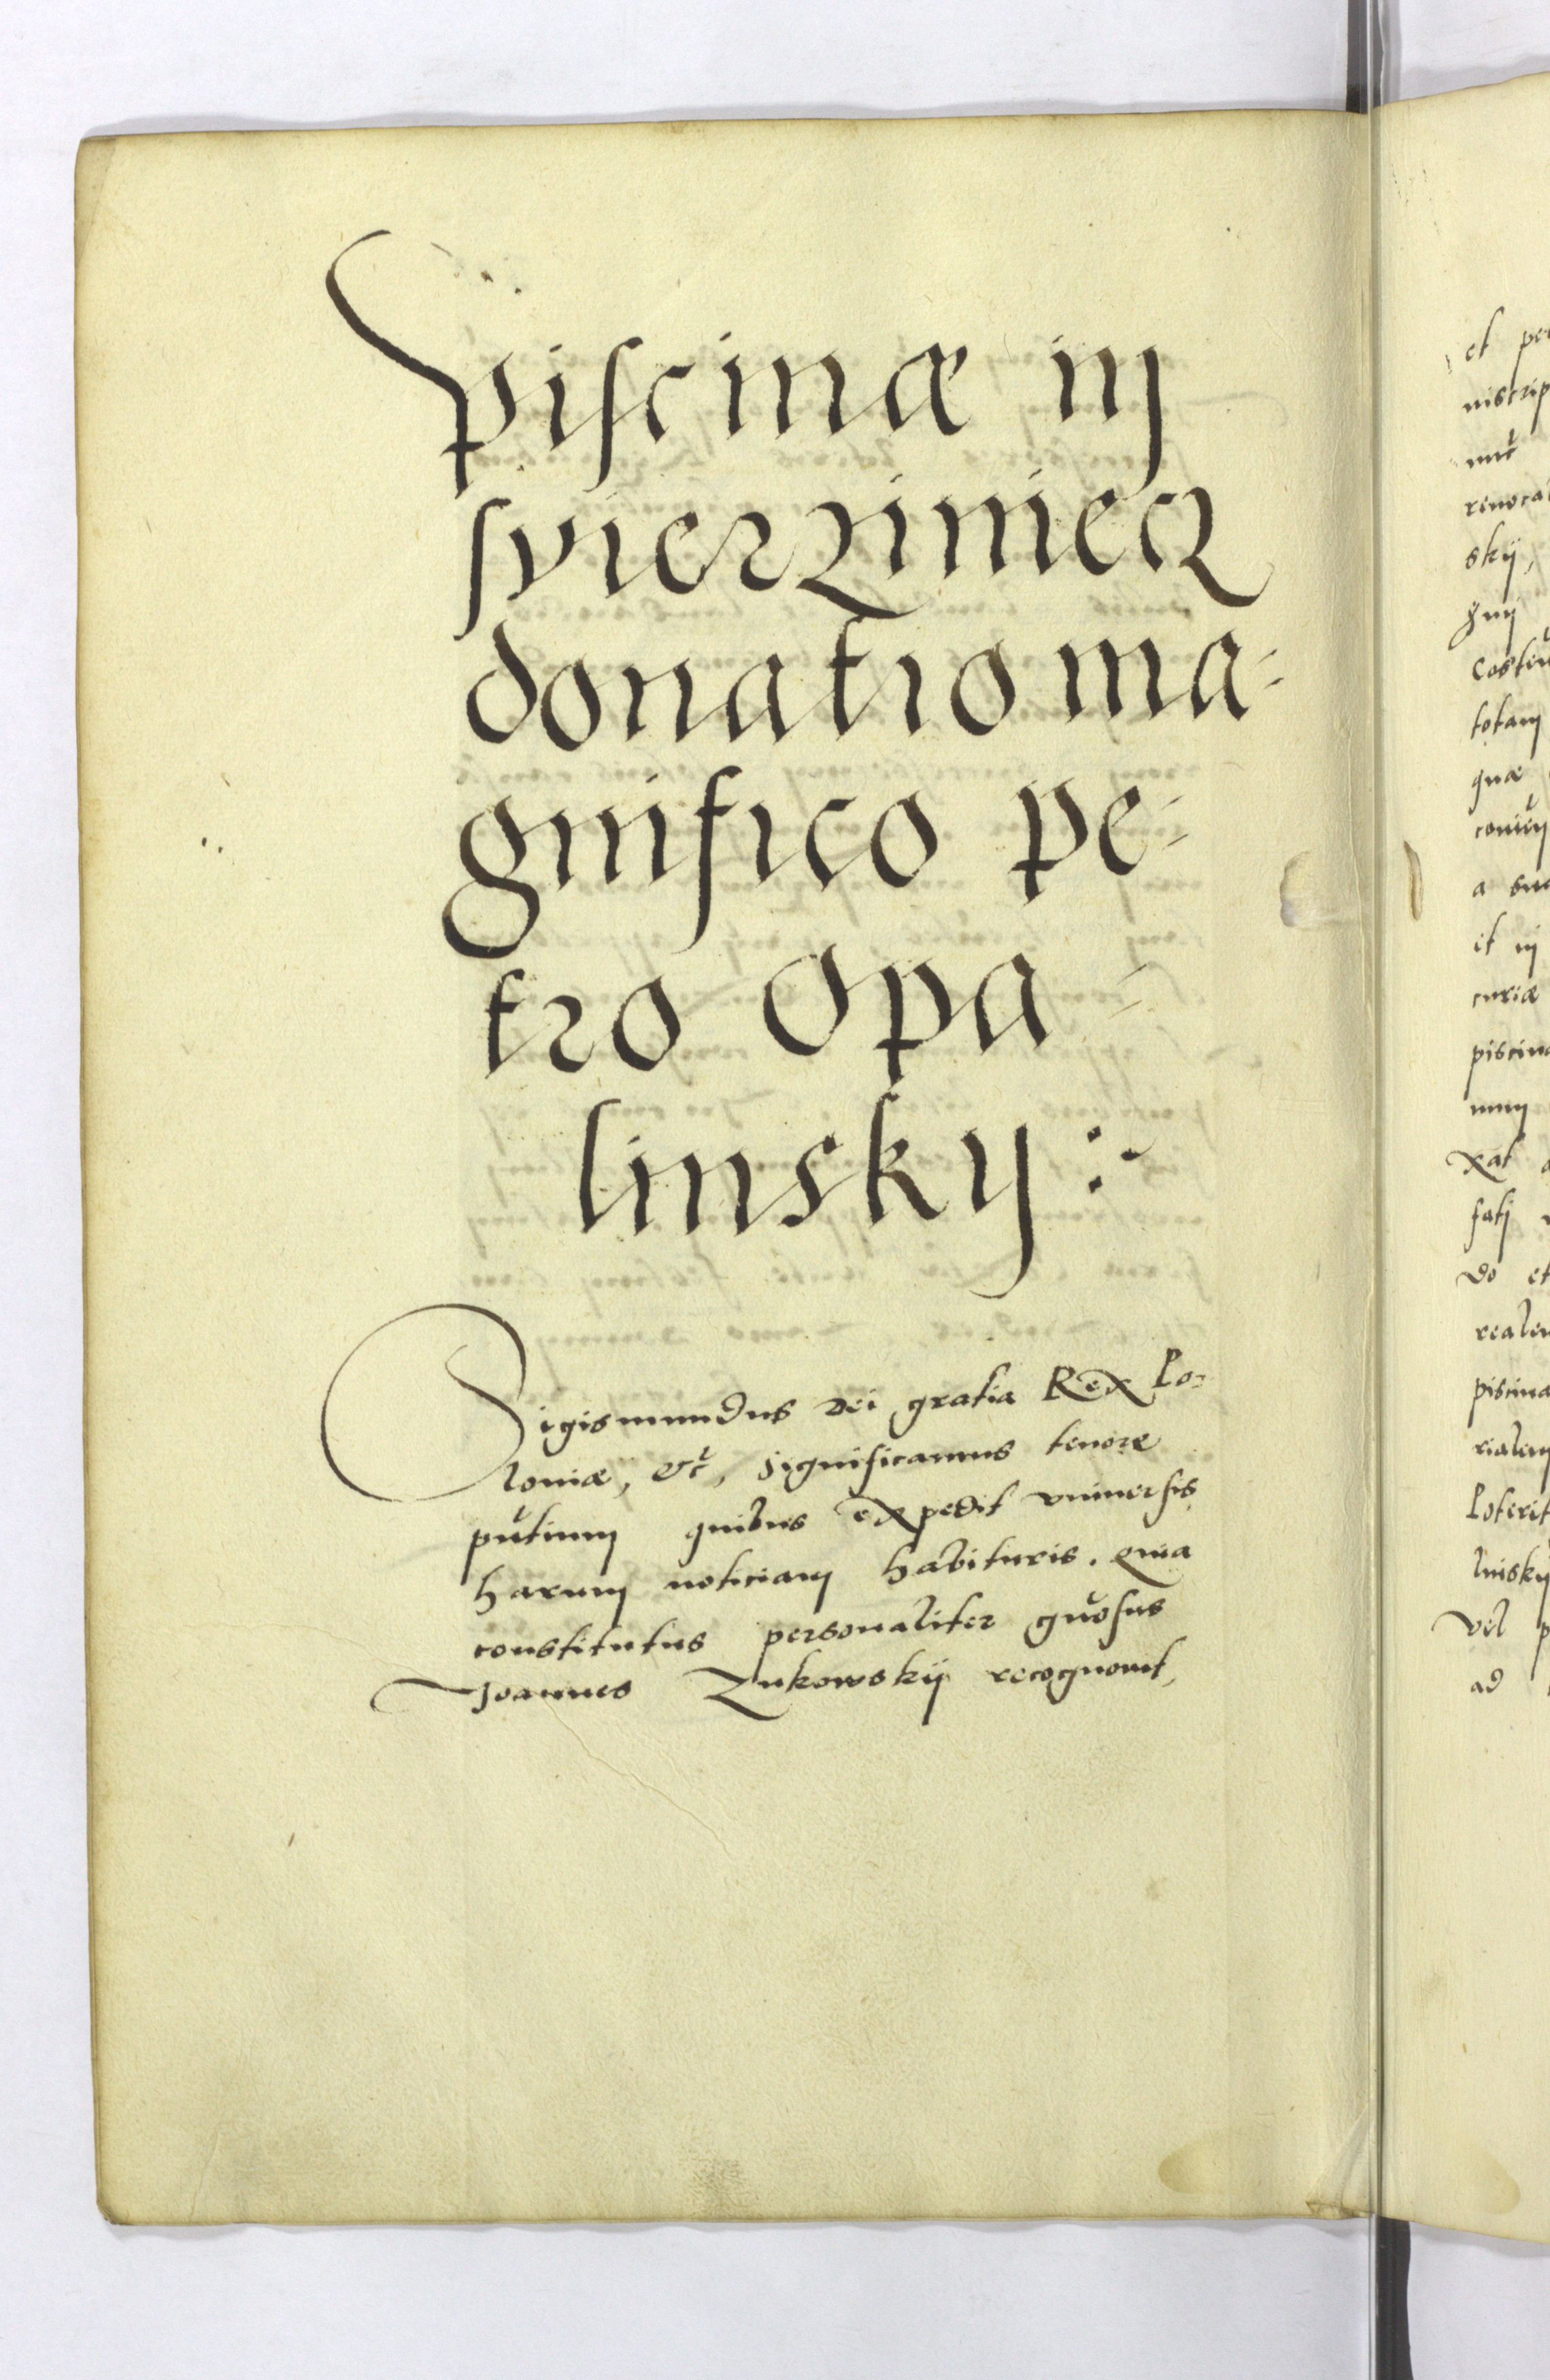 piscinæ in
svierziniecz
donatio ma-
gnifico pe-
tro Opa-
linsky :~
Sigismundus Dei gratia Rex Po-
loniæ, &c̃, significamus tenore
pñtium quibus expedit vniuersis
harum noticiam habituris. Quia
constitutus personaliter gñosus
Joannes Zukowskÿ recognouit,
et per
nis
renoca
skÿ,
totam
quæ
a sua
it in
curiæ
piscina
do et
realem
piscina
Poterit
linskÿ
vel p
ad